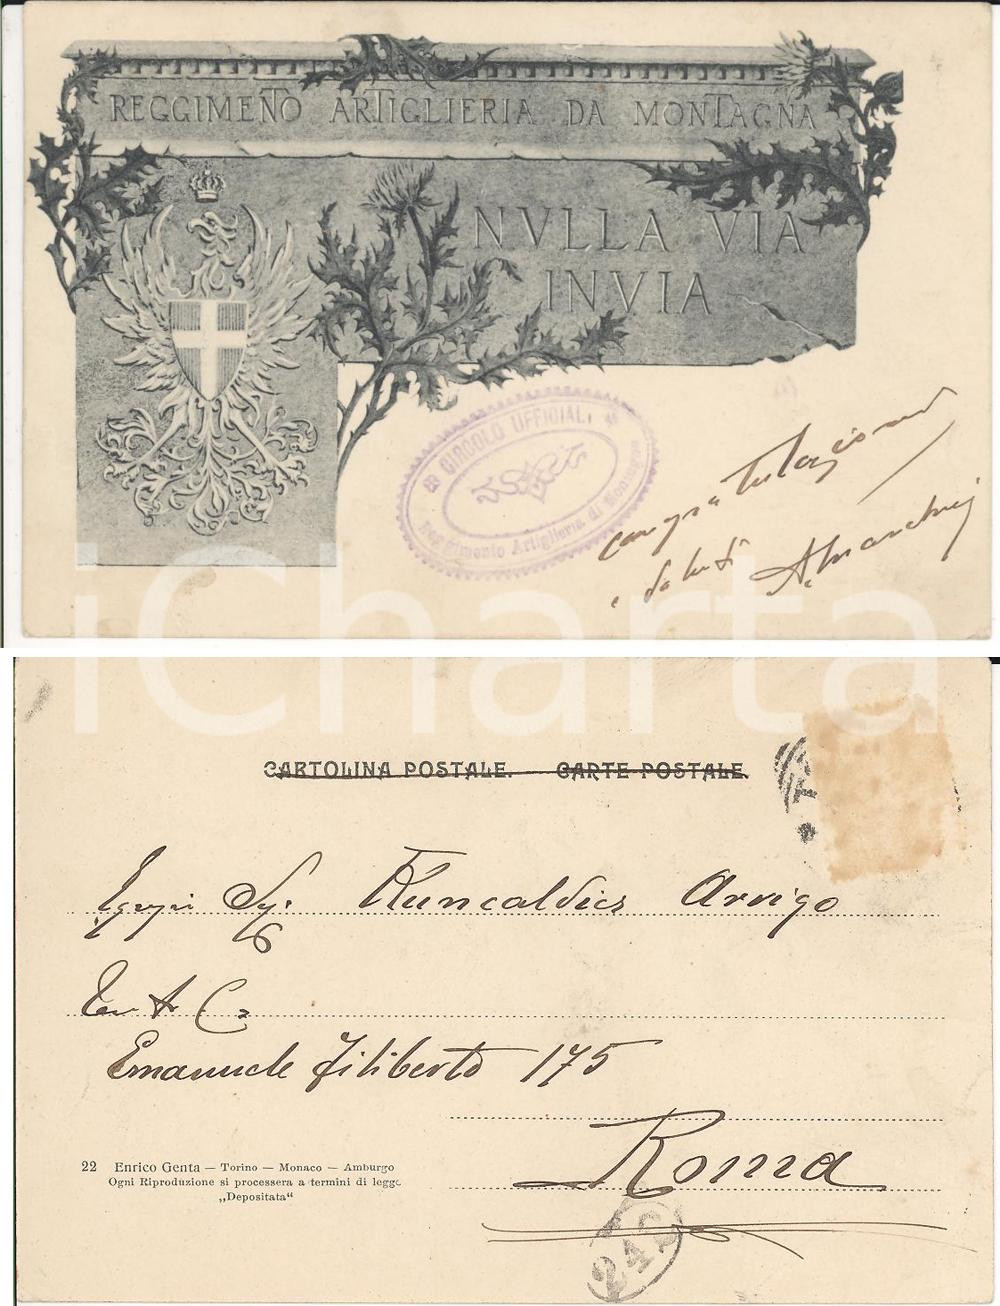 REGGIMENTO ARTIGLIERIA DA MONTAGNA
NVLLA VIA
INVIA
CIRCOLO UFFICIALI
Reggimento Artiglieria di Montagna
congratulazioni
e saluti
iCharta
CARTOLINA POSTALE. — CARTE POSTALE.
Sig. Arrigo
Emanuele Filiberto 175
Roma
22 Enrico Genta — Torino — Monaco — Amburgo
Ogni Riproduzione si processera a termini di legge
„Depositata“